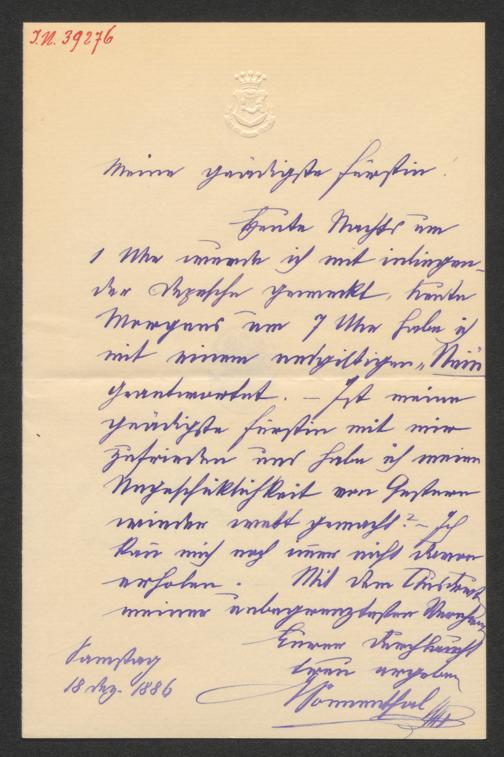 I.N. 39276
Meine gnädigste Fürstin!
Heute Nachts um
1 Uhr wurde ich mit inliegen-
der Depesche geweckt, heute
Morgens um 7 Uhr habe ich
mit einem endgiltigen „Nein"
geantwortet. – Ist meine
gnädigste Fürstin mit mir
zufrieden und habe ich meine
Ungeschiklichkeit von Gestern
wieder wett gemacht? – Ich
kann mich noch immer nicht davon
erholen. Mit dem Ausdruck
meiner unbegrenztesten Verehrung
Eurer Durchlaucht
treu ergeben
Sonnenthal
Samstag
18 Dez. 1886